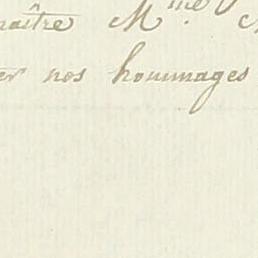 naître Mme
er nos hommages